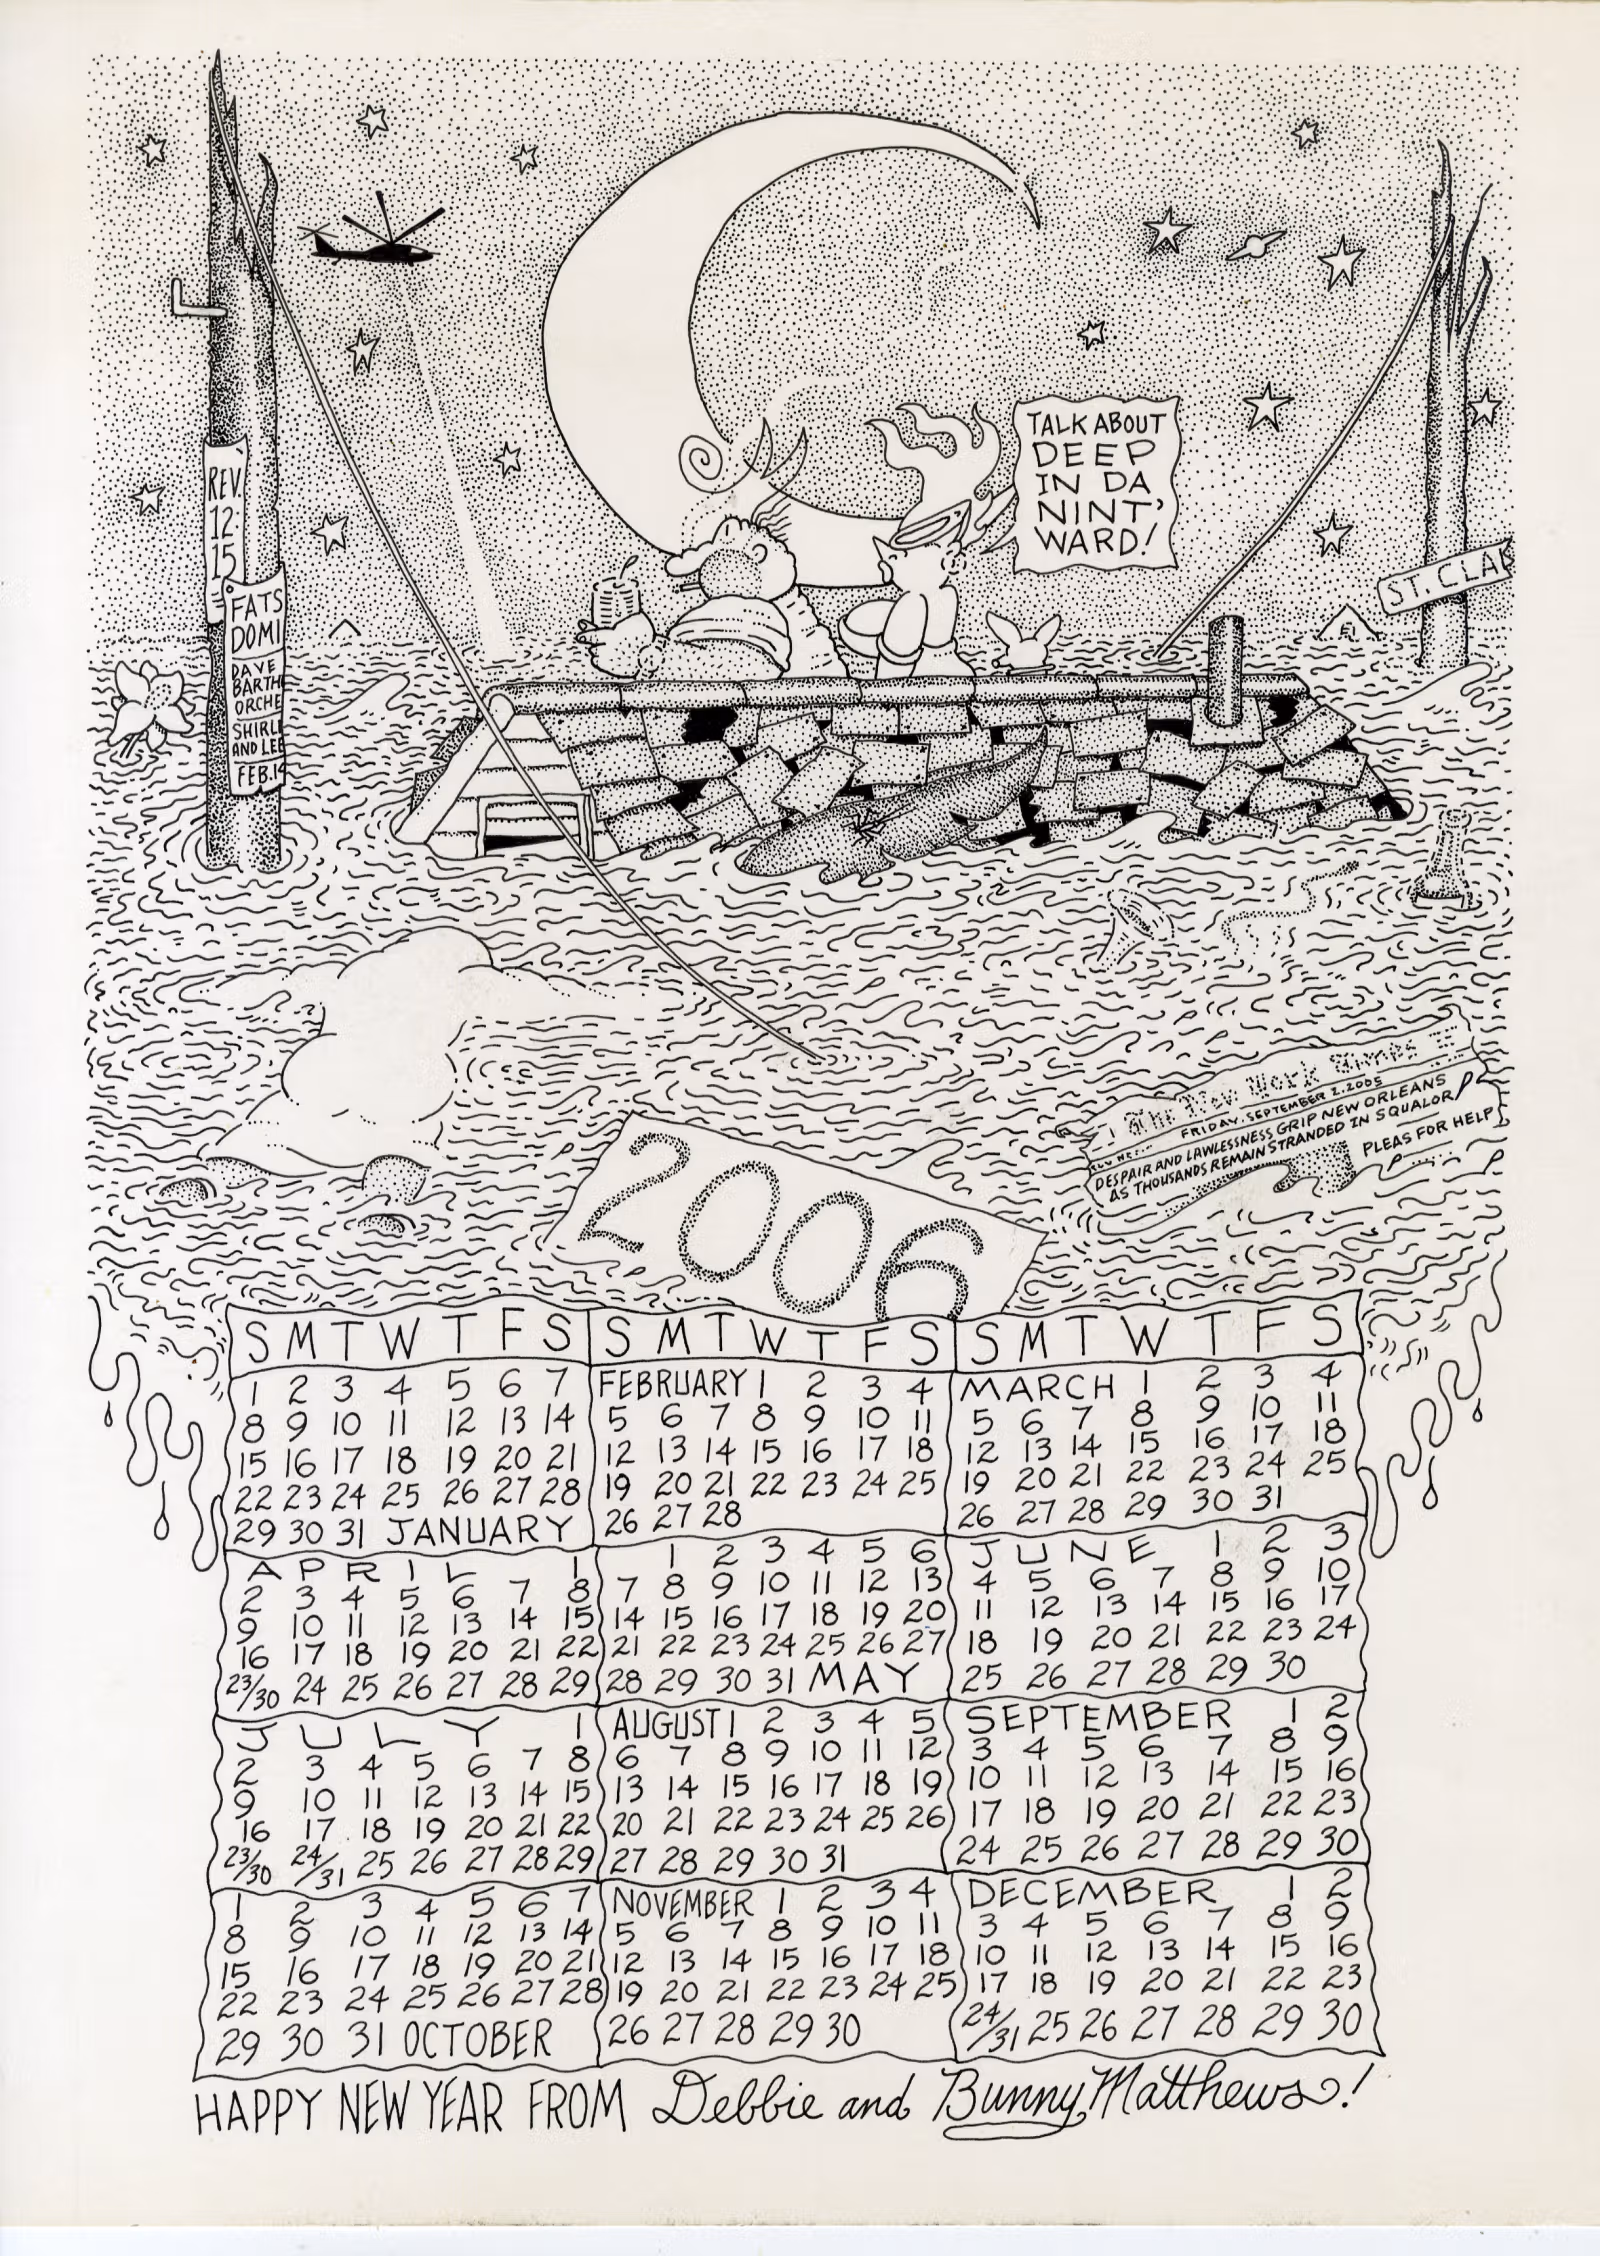 REV.
12
15
FATS
DOMI
DAVE
BARTH
ORCHE
SHIRL
AND LEE
FEB. 14
TALK ABOUT
DEEP
IN DA
NINT'
WARD!
ST. CLA
The New Work Times
FRIDAY, SEPTEMBER 2, 2005
DESPAIR AND LAWLESSNESS GRIP NEW ORLEANS
AS THOUSANDS REMAIN STRANDED IN SQUALOR
PLEAS FOR HELP
2006
S M T W T F S S M T W T F S S M T W T F S
1 2 3 4 5 6 7 FEBRUARY 1 2 3 4 MARCH 1 2 3 4
8 9 10 11 12 13 14 5 6 7 8 9 10 11 5 6 7 8 9 10 11
15 16 17 18 19 20 21 12 13 14 15 16 17 18 12 13 14 15 16 17 18
22 23 24 25 26 27 28 19 20 21 22 23 24 25 19 20 21 22 23 24 25
29 30 31 JANUARY 26 27 28 26 27 28 29 30 31
APRIL 1 1 2 3 4 5 6 JUNE 1 2 3
2 3 4 5 6 7 8 7 8 9 10 11 12 13 4 5 6 7 8 9 10
9 10 11 12 13 14 15 14 15 16 17 18 19 20 11 12 13 14 15 16 17
16 17 18 19 20 21 22 21 22 23 24 25 26 27 18 19 20 21 22 23 24
23/30 24 25 26 27 28 29 28 29 30 31 MAY 25 26 27 28 29 30
JULY 1 AUGUST 1 2 3 4 5 SEPTEMBER 1 2
2 3 4 5 6 7 8 6 7 8 9 10 11 12 3 4 5 6 7 8 9
9 10 11 12 13 14 15 13 14 15 16 17 18 19 10 11 12 13 14 15 16
16 17 18 19 20 21 22 20 21 22 23 24 25 26 17 18 19 20 21 22 23
23/30 24/31 25 26 27 28 29 27 28 29 30 31 24 25 26 27 28 29 30
1 2 3 4 5 6 7 NOVEMBER 1 2 3 4 DECEMBER 1 2
8 9 10 11 12 13 14 5 6 7 8 9 10 11 3 4 5 6 7 8 9
15 16 17 18 19 20 21 12 13 14 15 16 17 18 10 11 12 13 14 15 16
22 23 24 25 26 27 28 19 20 21 22 23 24 25 17 18 19 20 21 22 23
29 30 31 OCTOBER 26 27 28 29 30 24/31 25 26 27 28 29 30
HAPPY NEW YEAR FROM Debbie and Bunny Matthews!